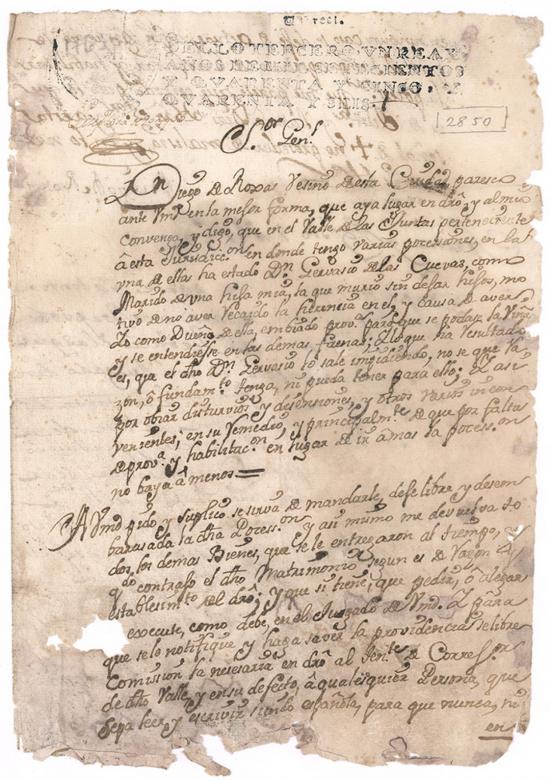 Un real.
SELLO TERCERO, VN REAL,
AÑOS DE MIL SETECIENTOS
Y QVARENTA Y CINCO, Y
QVARENTA Y SEIS.
2850
S.or Gen.l
Dn Diego de Roxas Vesino de esta Ciudad, paresco
ante Vmd en la mejor forma, que aya lugar en dro, y al mio
convenga, y digo, que en el Valle de las Juntas perteneciente
â esta Jurisdicc.on en donde tengo varias possesiones, en la
vna de ellas ha estado Dn Gervasio de las Cuevas, como
Marido de vna hija mia, la que murio sin dejar hijos, mo
tivo de no aver recaido la herencia en el, y causa de aver
yo como Dueño de ella, embiado prov.a para que se podase la Viña
y se entendiesse en las demas faenas; Lo que ha resultado
es, que el dho Dn Gervasio lo sale impidiendo, no se que ra
zon, ô fundam.to tenga, ni pueda tener para ello; Y assi
por obiar disturvios, y desensiones, y otros varios incon
venientes, en su remedio, y principalm.te de que por falta
de prov.a y habilitac.on en lugar de ir a mas la posess.on
no baya â menos =
A Vmd pido, y suplico se sirva de mandarle, deje libre y desem
barasada la dha Possess.on y assi mismo me devuelva to
dos los demas Bienes, que se le entregaron al tiempo,
q.do contrajo el dho Matrimonio segun es de razon, y
establesim.to del dro; y que si tiene, que pedir, ô alegar
execute, como debe, en el Juzgado de Vmd. Y para
que se le notifique, y haga saver la providencia, se libre
Comission la nesesaria en dro al Ten.te de Correg.or
de dho Valle, y en su defecto, â qualesquier Persona, que
sepa leer, y escrivir siendo española, para que nunca, ni
en